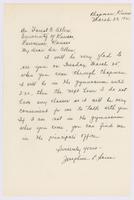 Chapman, Kansas
March 22, 19
Dr. Forrest C. Allen
University of Kansas
Lawrence, Kansas
My dear Dr. Allen:
I will be very glad to
see you on Tuesday March 25,
when you come through Chapman.
I will be in the gymnasium until
2:30, then the next hour I do not
have any classes so it will be very
convenient for me to talk with you.
If I am not in the gymnasium
when you come you can find me
in the principals office.
Sincerely yours -
Josephine